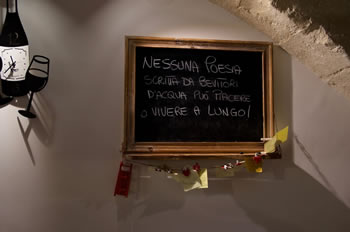 NESSUNA POESIA
SCRITTA DA BEVITORI
D'ACQUA PUÒ PIACERE
O VIVERE A LUNGO!